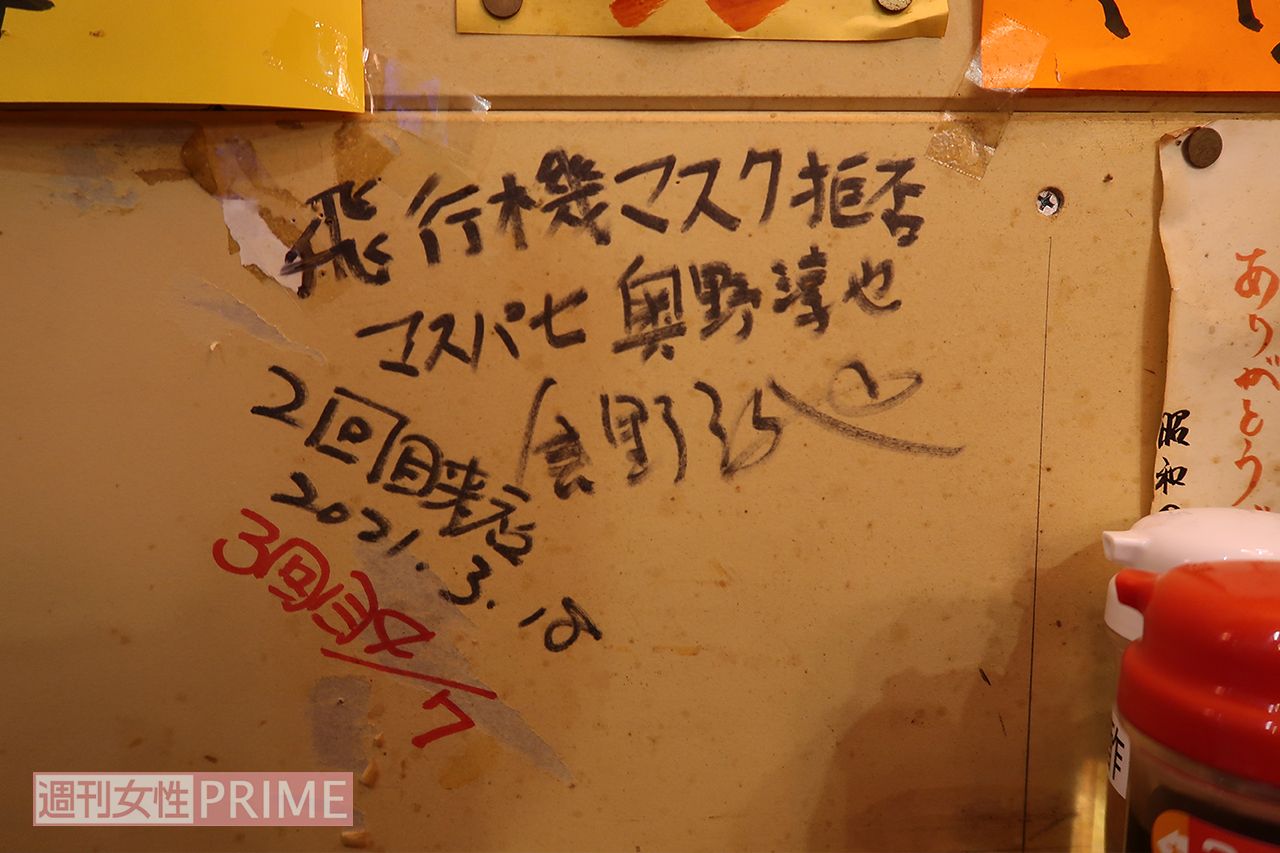 飛行機マスク拒否
マスパセ 奥野淳也
2回目来店
2021.3.18
3回目 8/7
ありがとう
昭和
酢
週刊女性PRIME